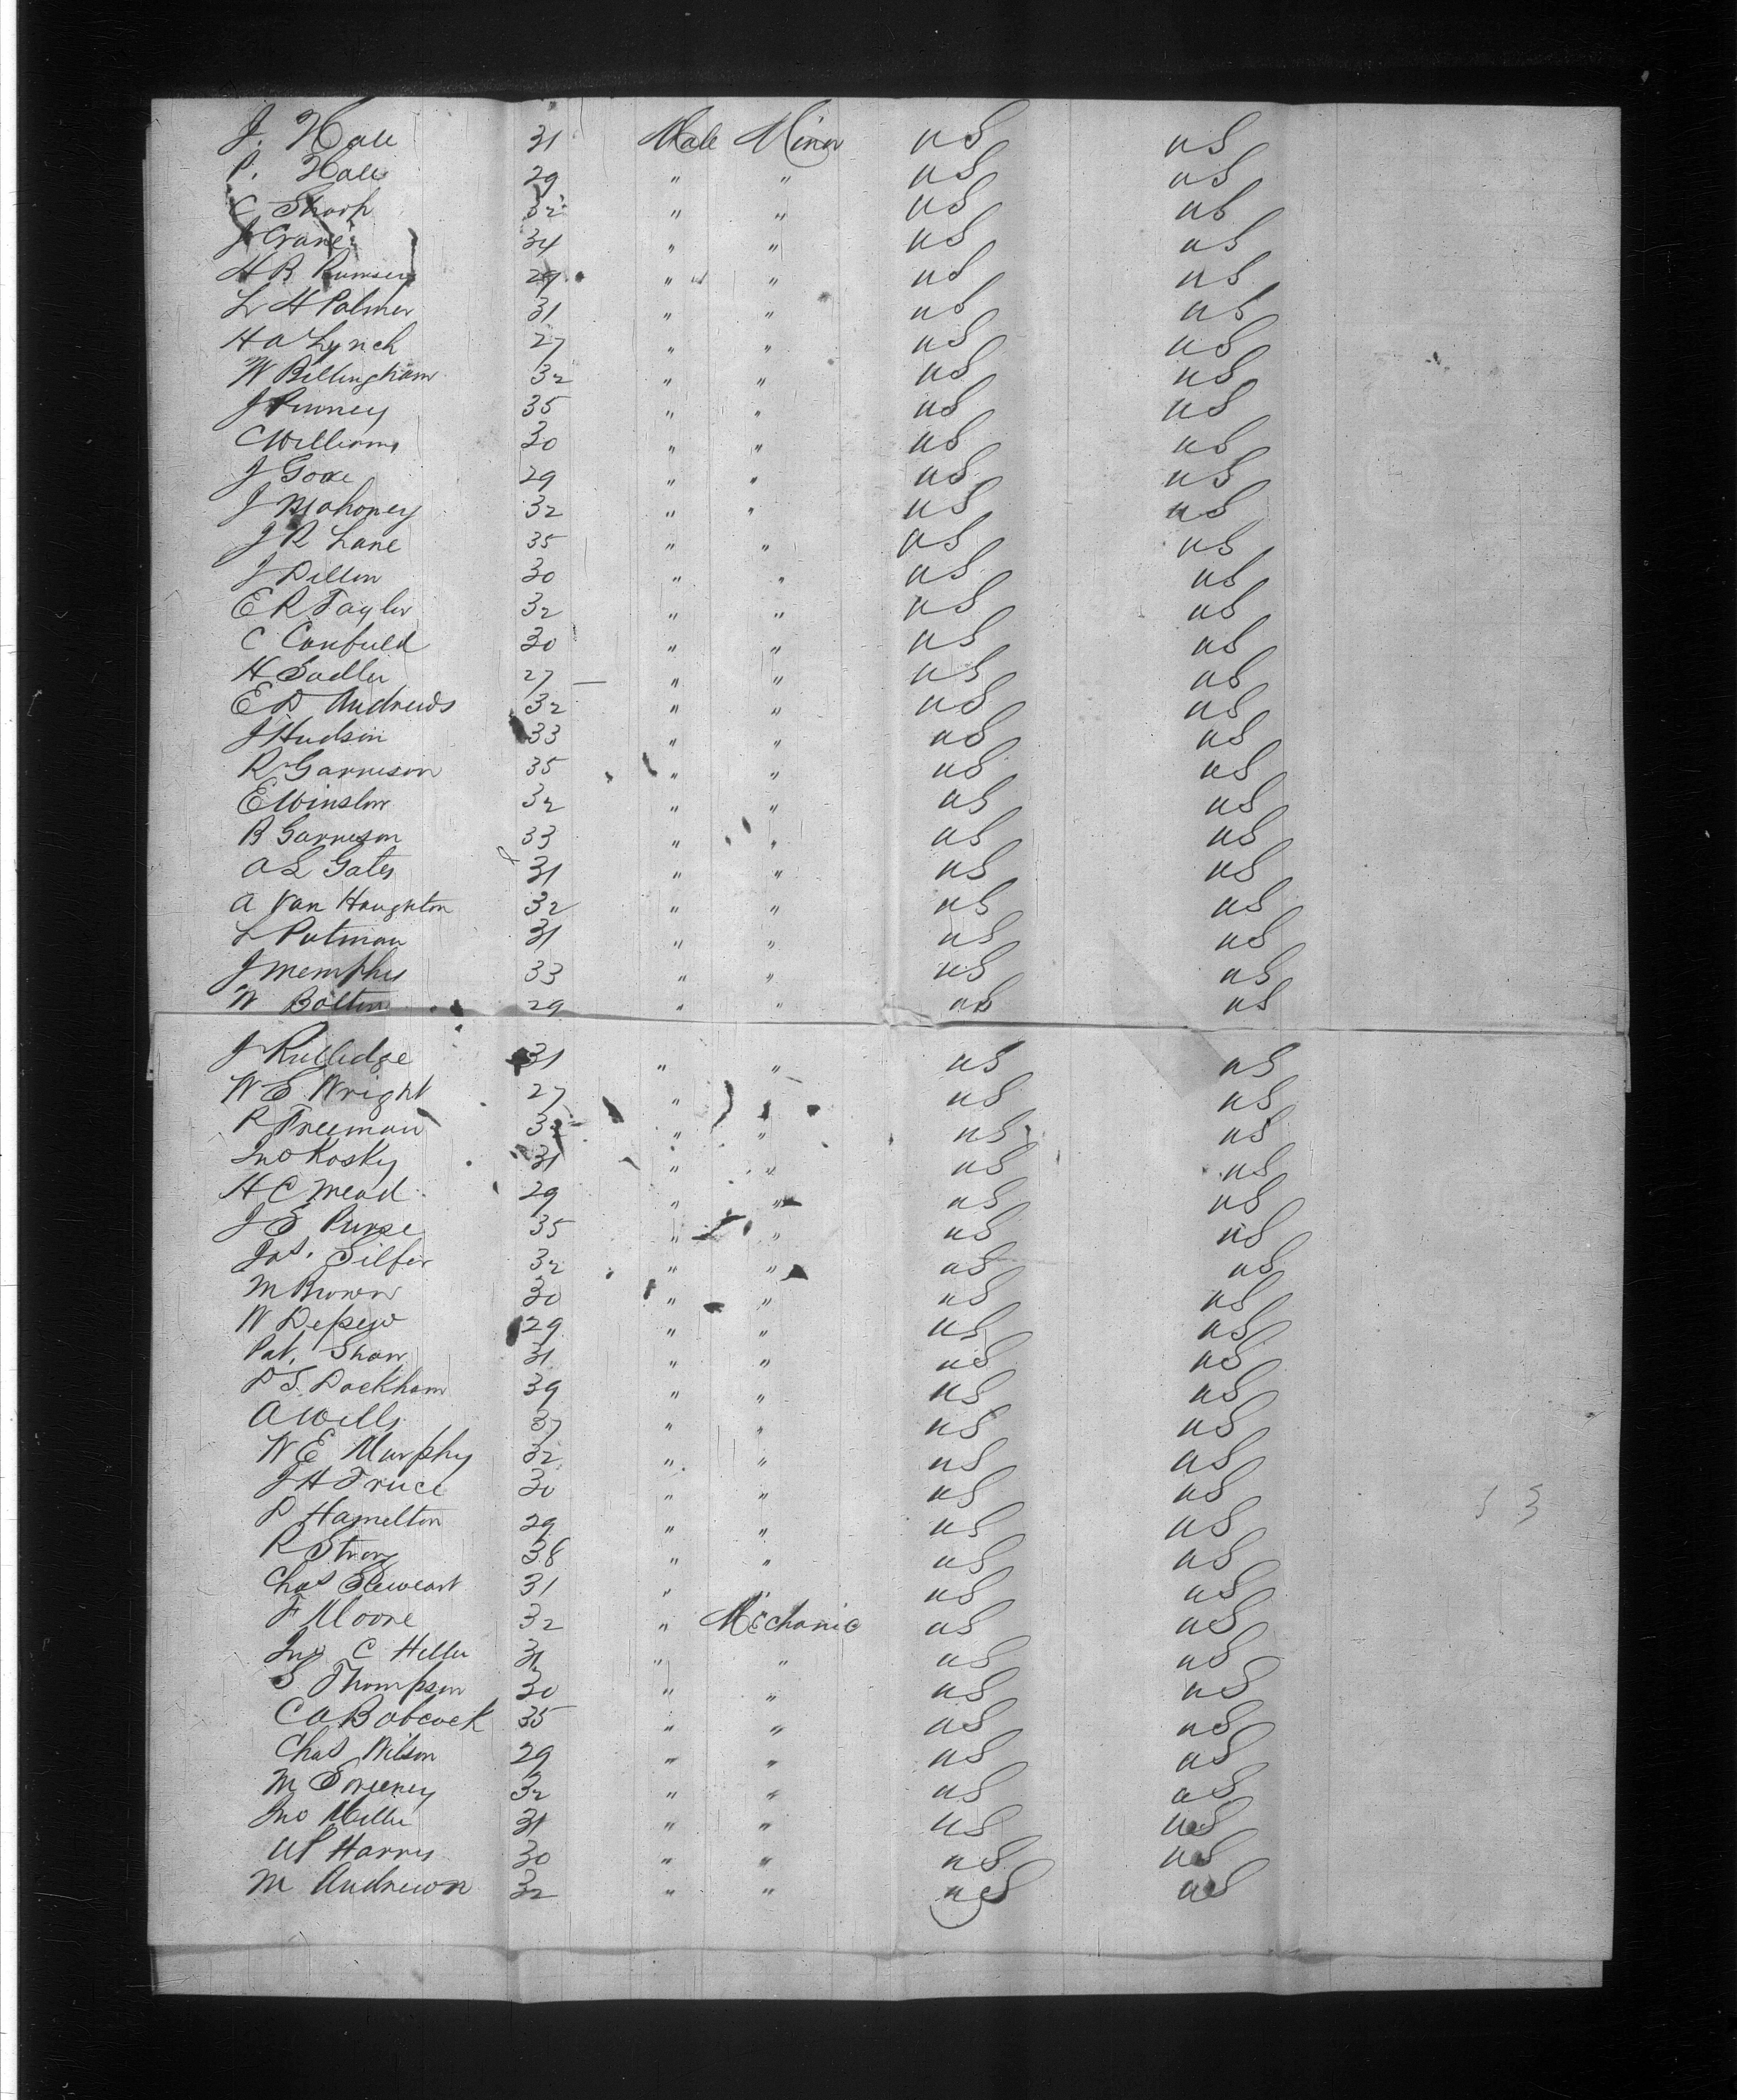 J. Hall 31 Male Minor US US
P. Hall 29 " " US US
C Sharp 32 " " US US
J Crane 34 " " US US
H B Rumsey 29 " " US US
L H Palmer 31 " " US US
H A Lynch 27 " " US US
W Billingham 32 " " US US
J Pinney 35 " " US US
C Williams 30 " " US US
J Goxe 29 " " US US
J Mahoney 32 " " US US
J R Lane 35 " " US US
J Dillon 30 " " US US
E R Taylor 32 " " US US
C Canfield 30 " " US US
H Sadler 27 " " US US
E D Andrews 32 " " US US
J Hudson 33 " " US US
R Garrison 35 " " US US
E Winslow 32 " " US US
B Garrison 33 " " US US
A L Gates 31 " " US US
A Van Haughton 32 " " US US
L Putman 31 " " US US
J Memphis 33 " " US US
W Bolton 29 " " US US
J Rutledge 31 " " US US
W E Wright 27 " " US US
R Freeman 32 " " US US
Jno Kosky 31 " " US US
H C Mead 29 " " US US
J E Purse 35 " " US US
Jas. Silfer 32 " " US US
M Brown 30 " " US US
W Depew 29 " " US US
Pat. Shaw 31 " " US US
D S. Dockham 39 " " US US
A Wells 37 " " US US
W E Murphy 32 " " US US
J H Truce 30 " " US US
D Hamelton 29 " " US US
R Strong 38 " " US US
Chas Stewart 31 " " US US
F Moore 32 " Mechanic US US
Jno C Heller 31 " " US US
S Thompson 30 " " US US
C A Babcock 35 " " US US
Chas Wilson 29 " " US US
M Sweeney 32 " " US US
Jno Miller 31 " " US US
W Harris 30 " " US US
M Andrews 32 " " US US
53